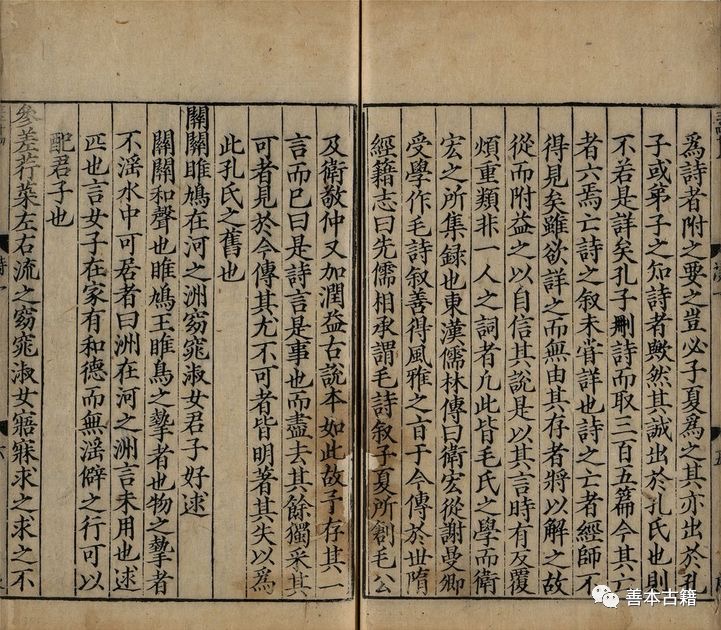 爲詩者附之要之豈必子夏爲之其亦出於孔
子或弟子之知詩者歟然其誠出於孔氏也則
不若是詳矣孔子刪詩而取三百五篇今其亡
者六焉亡詩之叙未甞詳也詩之亡者經師不
得見矣雖欲詳之而無由其存者將以解之故
從而附益之以自信其說是以其言時有反覆
煩重類非一人之詞者凢此皆毛氏之學而衛
宏之所集録也東漢儒林傳曰衛宏從謝曼卿
受學作毛詩叙善得風雅之㫖于今傳於世隋
經籍志曰先儒相承謂毛詩叙子夏所創毛公
及衛敬仲又加潤益古說本如此故予存其一
言而已曰是詩言是事也而盡去其餘獨采其
可者見於今傳其尤不可者皆明著其失以爲
此孔氏之舊也
關關雎鳩在河之洲窈窕淑女君子好逑
關關和聲也雎鳩王雎鳥之摯者也物之摯者
不滛水中可居者曰洲在河之洲言未用也逑
匹也言女子在家有和德而無滛僻之行可以
配君子也
參差荇菜左右流之窈窕淑女寤寐求之求之不
善本古籍